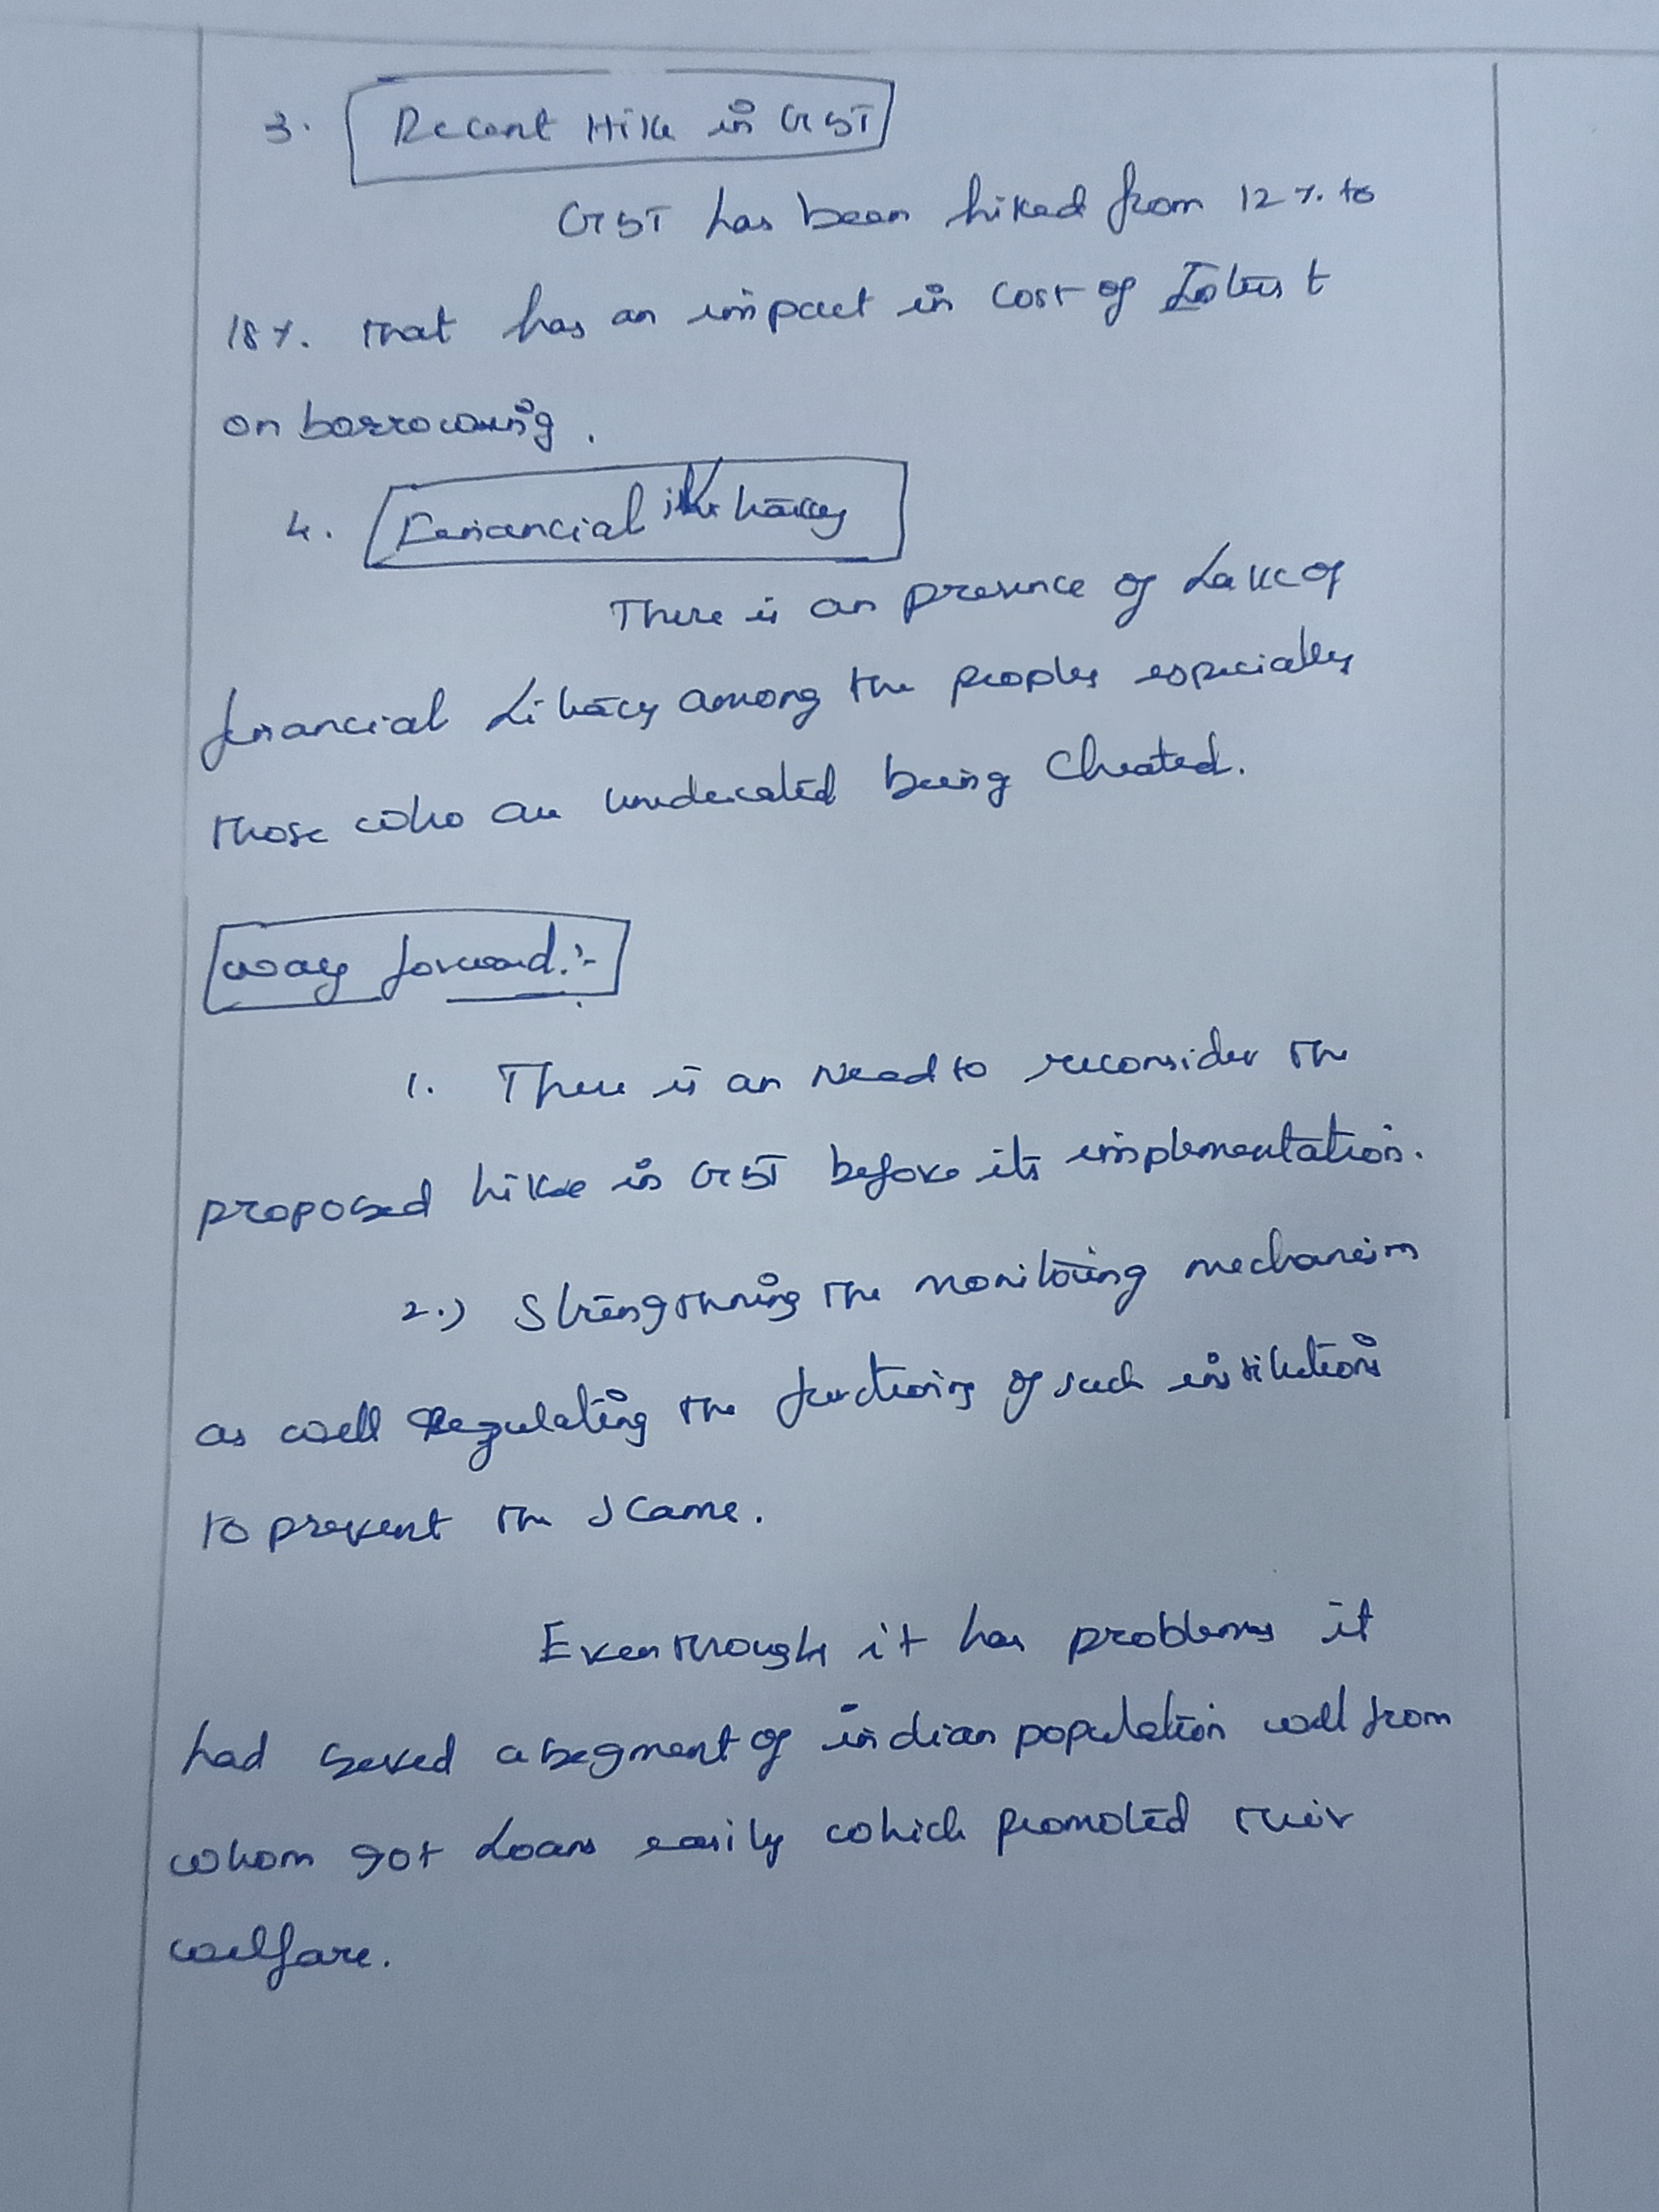 3. Recent Hike in GST
GST has been hiked from 12 %. to
18 %. that has an impact in cost of Interest
on borrowing.
4. Financial illiteracy
There is an presence of Lack of
financial Literacy among the peoples especially
those who are uneducated being Cheated.
way forward.:-
1. There is an Need to reconsider the
proposed hike in GST before its implementation.
2.) Strengthning the monitoring mechanism
as well Regulating the functioning of such institutions
to prevent the scame.
Eventhough it has problems it
had served a segment of indian population well from
whom got Loans easily which promoted their
welfare.